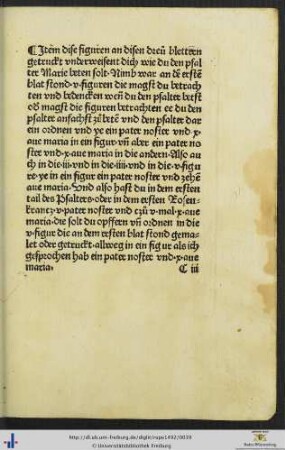 ¶ Item dise figuren an disen dreü blettern
getruckt vnderweisent dich wie du den psal
ter Marie beten solt. Nimb war an dē erstē
blat stond .v. figuren die magst du betrach
ten vnd bedencken wen̄ du den psalter betst
od̓ magst die figuren betrachten ee du den
psalter anfachst zů betē vnd den psalter dar
ein ordnen vnd ye ein pater noster vnd .x.
aue maria in ein figur vn̄ aber ein pater no
ster vnd .x. aue maria in die andern. Also au
ch in die .iii. vnd in die .iiii. vnd in die .v. figu
re. ye in ein figur ein pater noster vnd zehē
aue maria. Vnd also hast du in dem ersten
tail des Psalters. oder in dem ersten Rosen
krantz .v. pater noster vnd czů .v. mal .x. aue
maria. die solt du opffern vn̄ ordnen in die
.v. figur die an dem ersten blat stond gema
let oder getruckt. allweg in ein figur als ich
gesprochen hab ein pater noster vnd .x. aue
maria.
C iii
http://dl.ub.uni-freiburg.de/diglit/rape1492/0039
© Universitätsbibliothek Freiburg
Baden-Württemberg